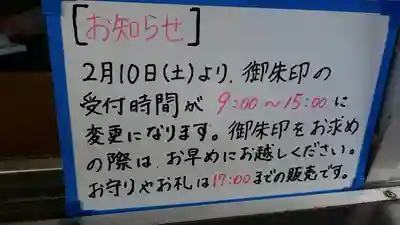 [お知らせ]
2月10日(土)より、御朱印の
受付時間が 9:00〜15:00 に
変更になります。御朱印をお求め
の際は、お早めにお越しください。
お守りやお札は17:00までの販売です。